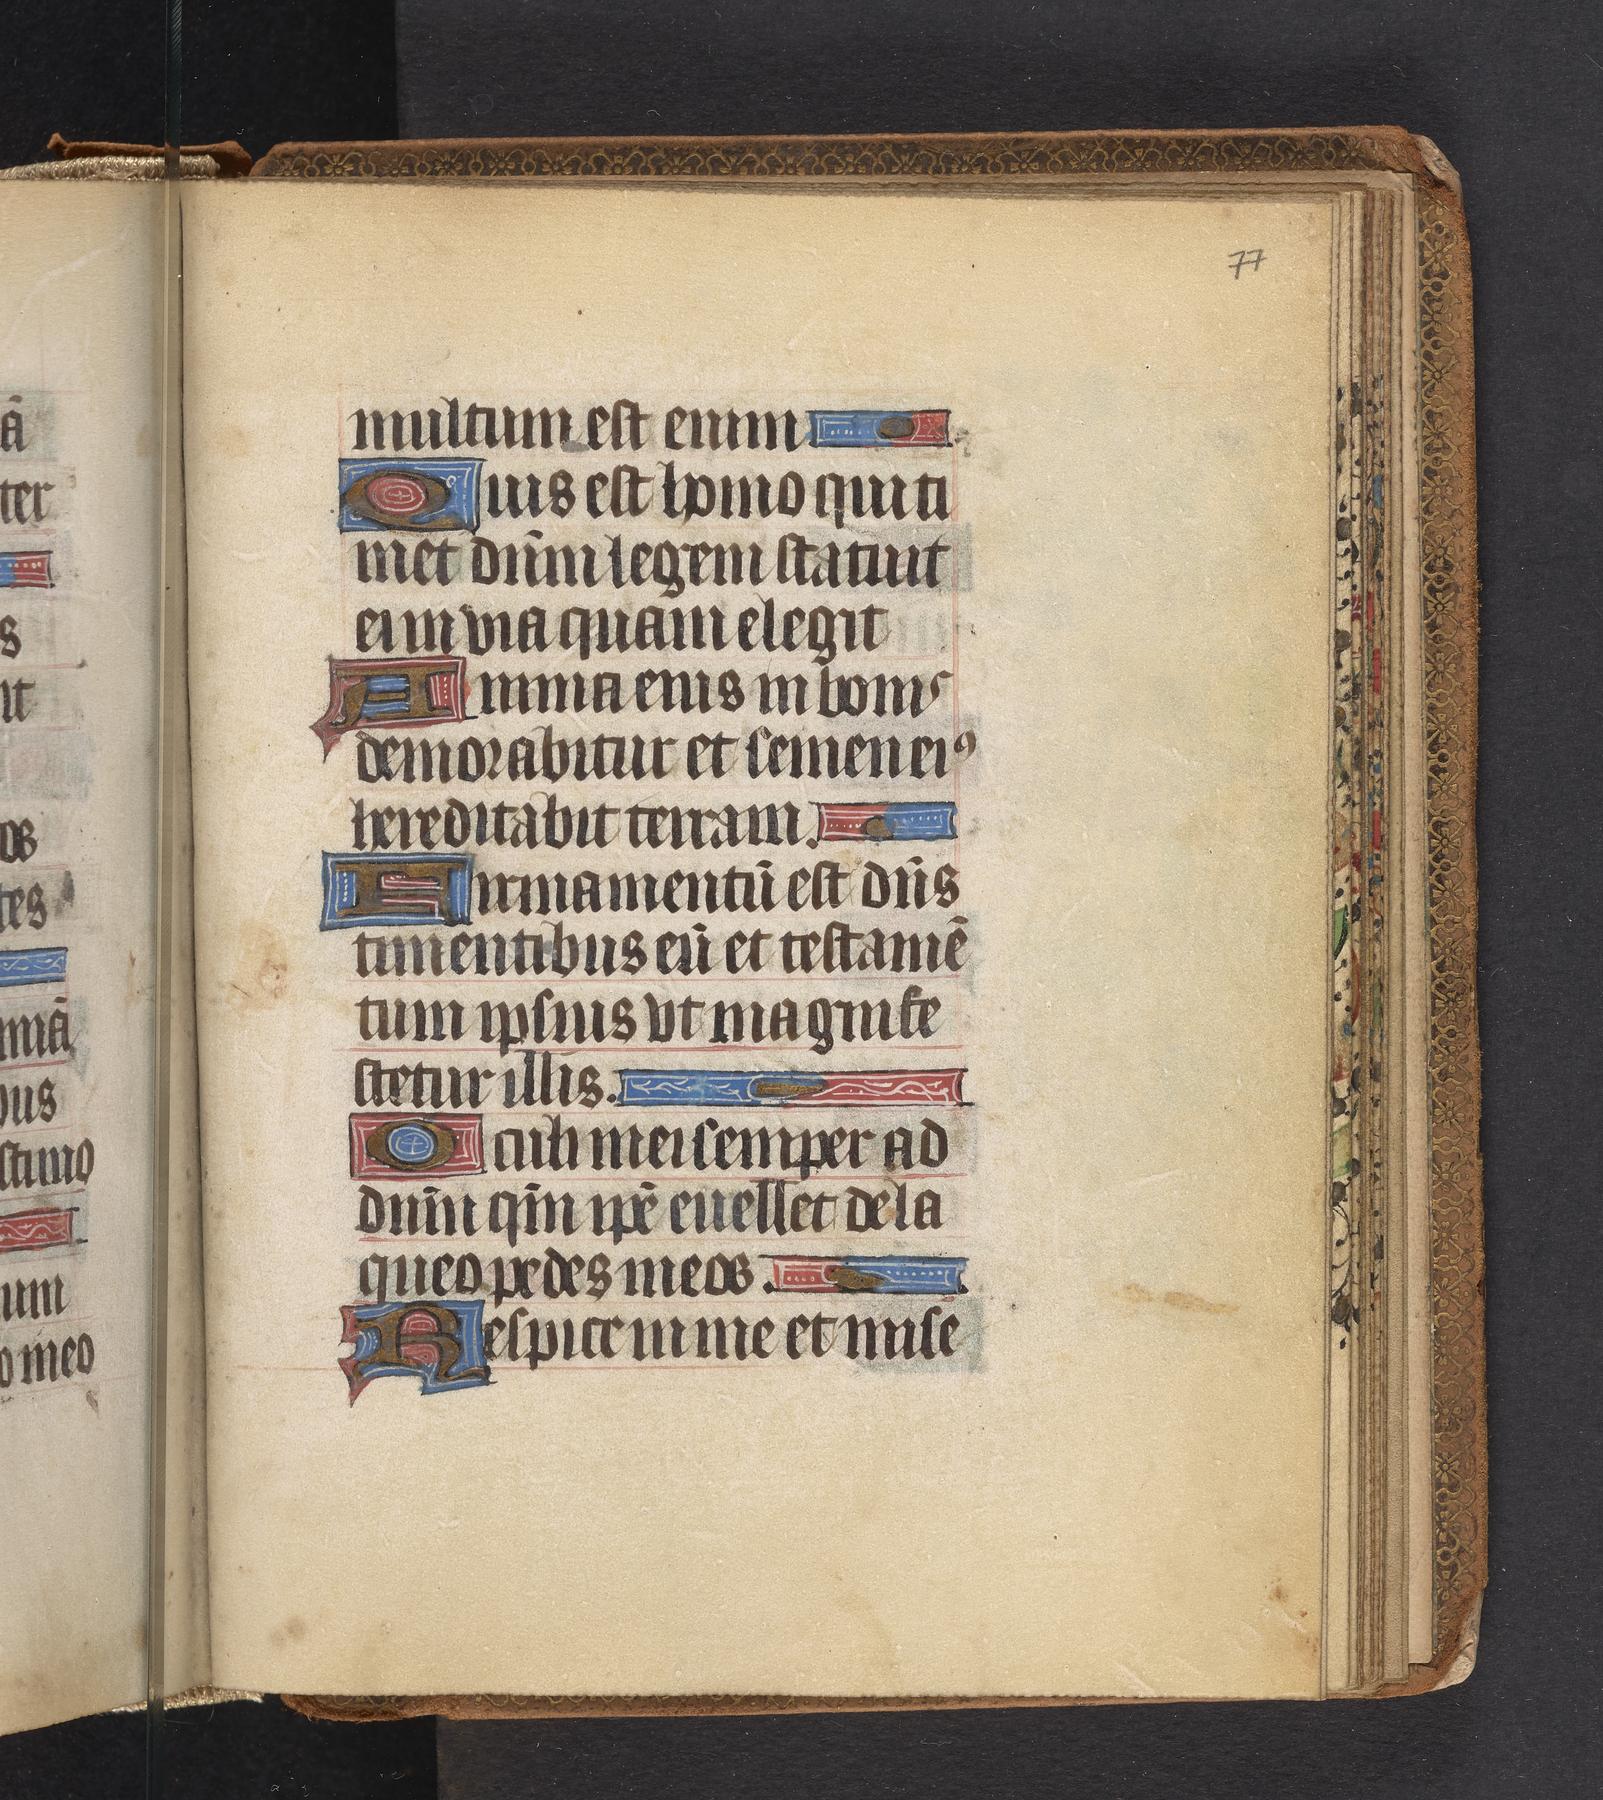 77
multum est enim
Quis est homo qui ti
met dñm legem statuit
ei in via quam elegit
Anima eius in bonis
demorabitur et semen eiꝰ
hereditabit terram.
Firmamentū est dñs
timentibus eū et testamē
tum ipsius vt magnife
stetur illis.
Oculi mei semper ad
dñm qm̄ ip̄e euellet de la
queo pedes meos.
Respice in me et mise
ā
ter
s
it
os
tes
mā
bus
stimo
um
o meo